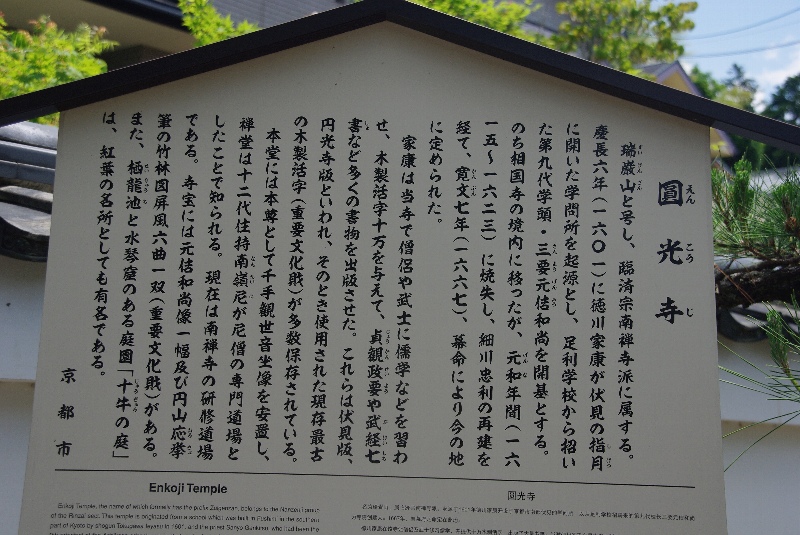 圓光寺
瑞巌山と号し、臨済宗南禅寺派に属する。
慶長六年（一六〇一）に徳川家康が伏見の指月
に開いた学問所を起源とし、足利学校から招い
た第九代学頭・三要元佶和尚を開基とする。
のち相国寺の境内に移ったが、元和年間（一六
一五〜一六二三）に焼失し、細川忠利の再建を
経て、寛文七年（一六六七）、幕命により今の地
に定められた。
家康は当寺で僧侶や武士に儒学などを習わ
せ、木製活字十万を与えて、貞観政要や武経七
書など多くの書物を出版させた。これらは伏見版、
円光寺版といわれ、そのとき使用された現存最古
の木製活字（重要文化財）が多数保存されている。
本堂には本尊として千手観世音坐像を安置し、
禅堂は十二代住持南嶺尼が尼僧の専門道場と
したことで知られる。現在は南禅寺の研修道場
である。寺宝には元佶和尚像一幅及び円山応挙
筆の竹林図屏風六曲一双（重要文化財）がある。
また、栖龍池と水琴窟のある庭園「十牛の庭」
は、紅葉の名所としても有名である。
京都市
Enkoji Temple
Enkoji Temple, the name of which formally has the prefix Zuiganzan, belongs to the Nanzenji group
of the Rinzai sect. This temple is originated from a school which was built in Fushimi, in the southern
part of Kyoto by shogun Tokugawa Ieyasu in 1601, and the priest Sanyo Genkitsu, who had been the
圆光寺